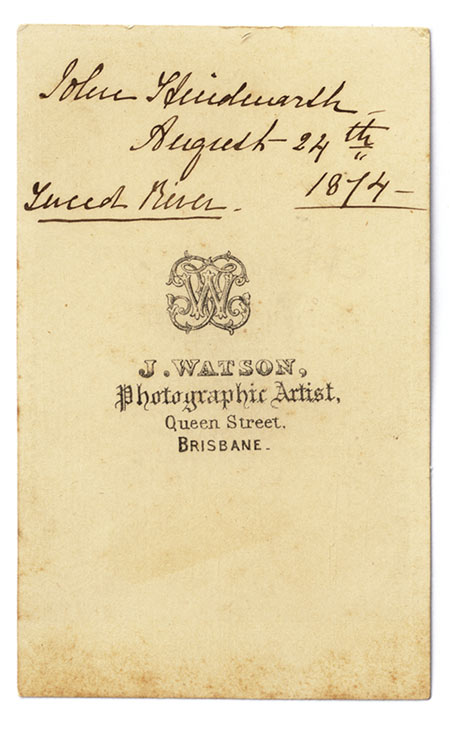 John Hindmarsh
August 24th
Tweed River. 1874-
JW
J. WATSON,
Photographic Artist,
Queen Street.
BRISBANE.